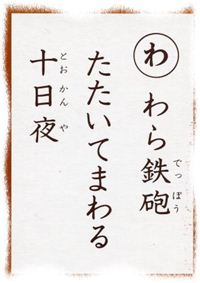 わ
わら鉄砲
でっぽう
たたいてまわる
十日夜
とおかんや